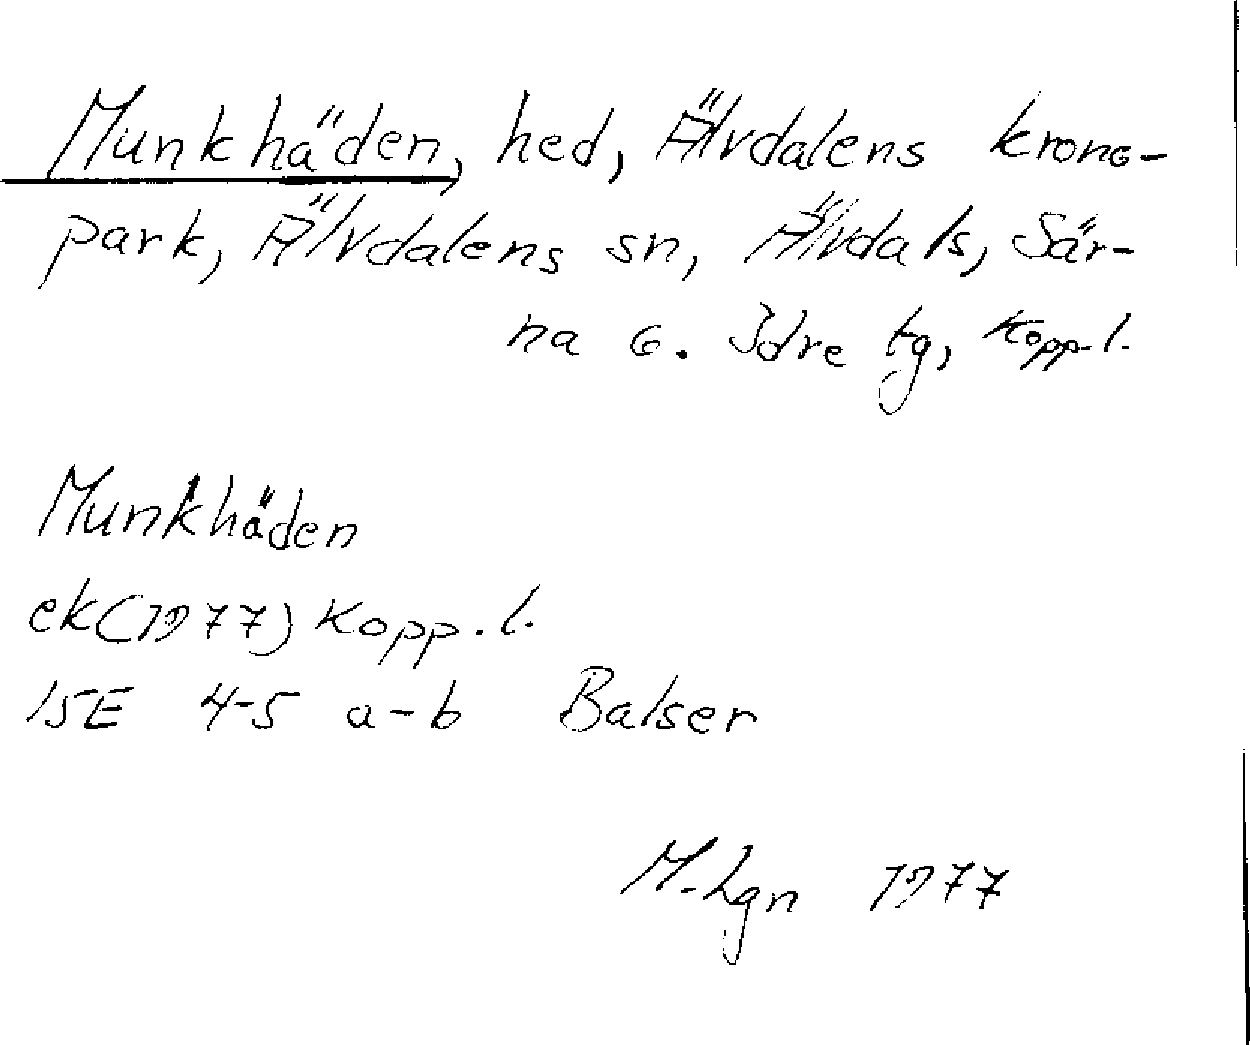 Munkhäden, hed, Älvdalens krono-
park, Älvdalens sn, Älvdals, Sär-
na o. Idre tg, Kopp. l.
Munkhäden
ek(1977) Kopp. l.
15E 4-5 a-b Balser
M-Lgn 1977